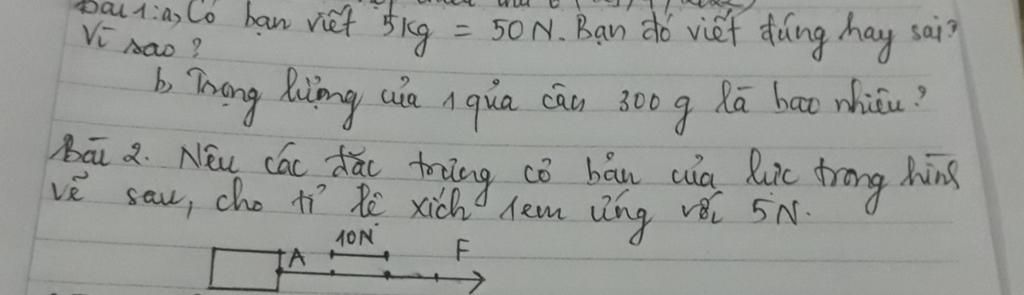 Bài 1: a, Có bạn viết 5kg = 50N. Bạn đó viết đúng hay sai?
Vì sao?
b, Trọng lượng của 1 quả cân 300 g là bao nhiêu?
Bài 2. Nêu các đặc trưng cơ bản của lực trong hình
vẽ sau, cho tỉ lệ xích 1cm ứng với 5N.
10N
A F